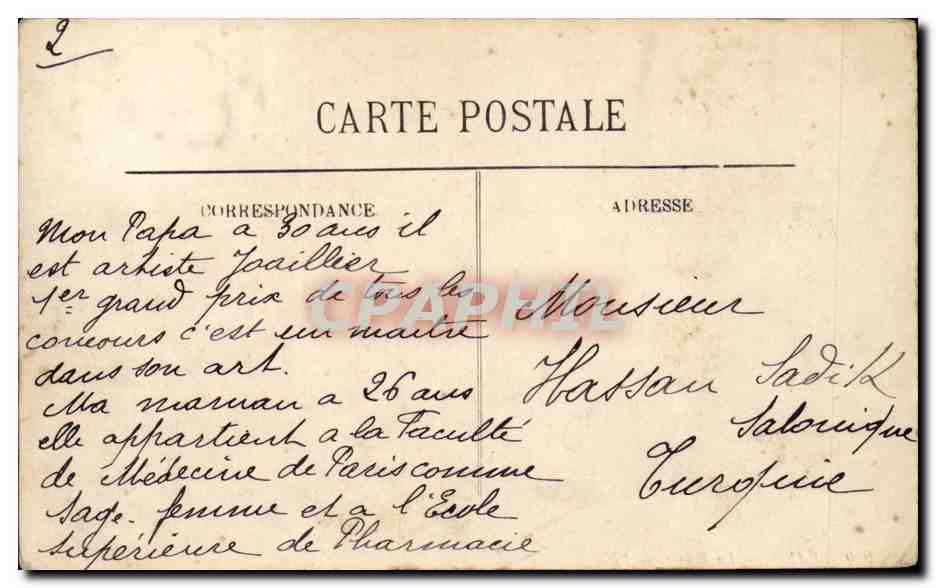 2
CARTE POSTALE
CORRESPONDANCE
Mon Papa a 30 ans il
est artiste Joaillier
1er grand prix de tous les
concours c'est un maitre
dans son art.
Ma maman a 26 ans
elle appartient a la Faculté
de Médecine de Paris comme
Sage-femme et a l'Ecole
Supérieure de Pharmacie
ADRESSE
Monsieur
Hassan Sadik
Salonique
Turquie
CPAPHIL